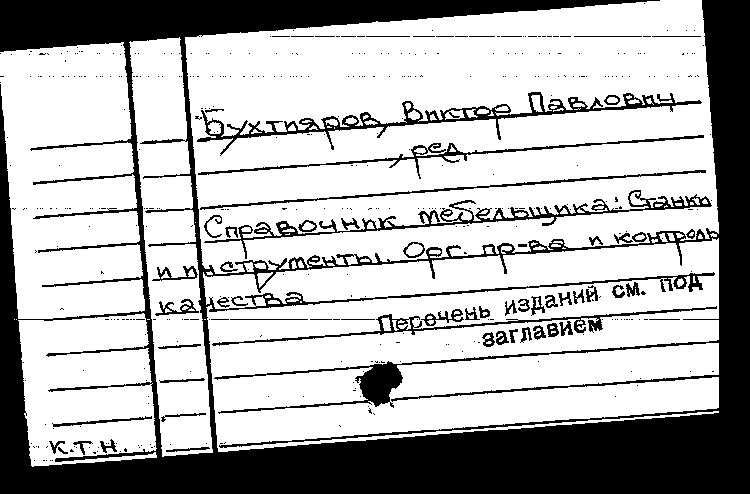 Бухтияров, Виктор Павлович
, ред.
Справочник мебельщика: Станки
и инструменты. Орг. пр-ва и контроль
качества
Перечень изданий см. под
заглавием
к.т.н.